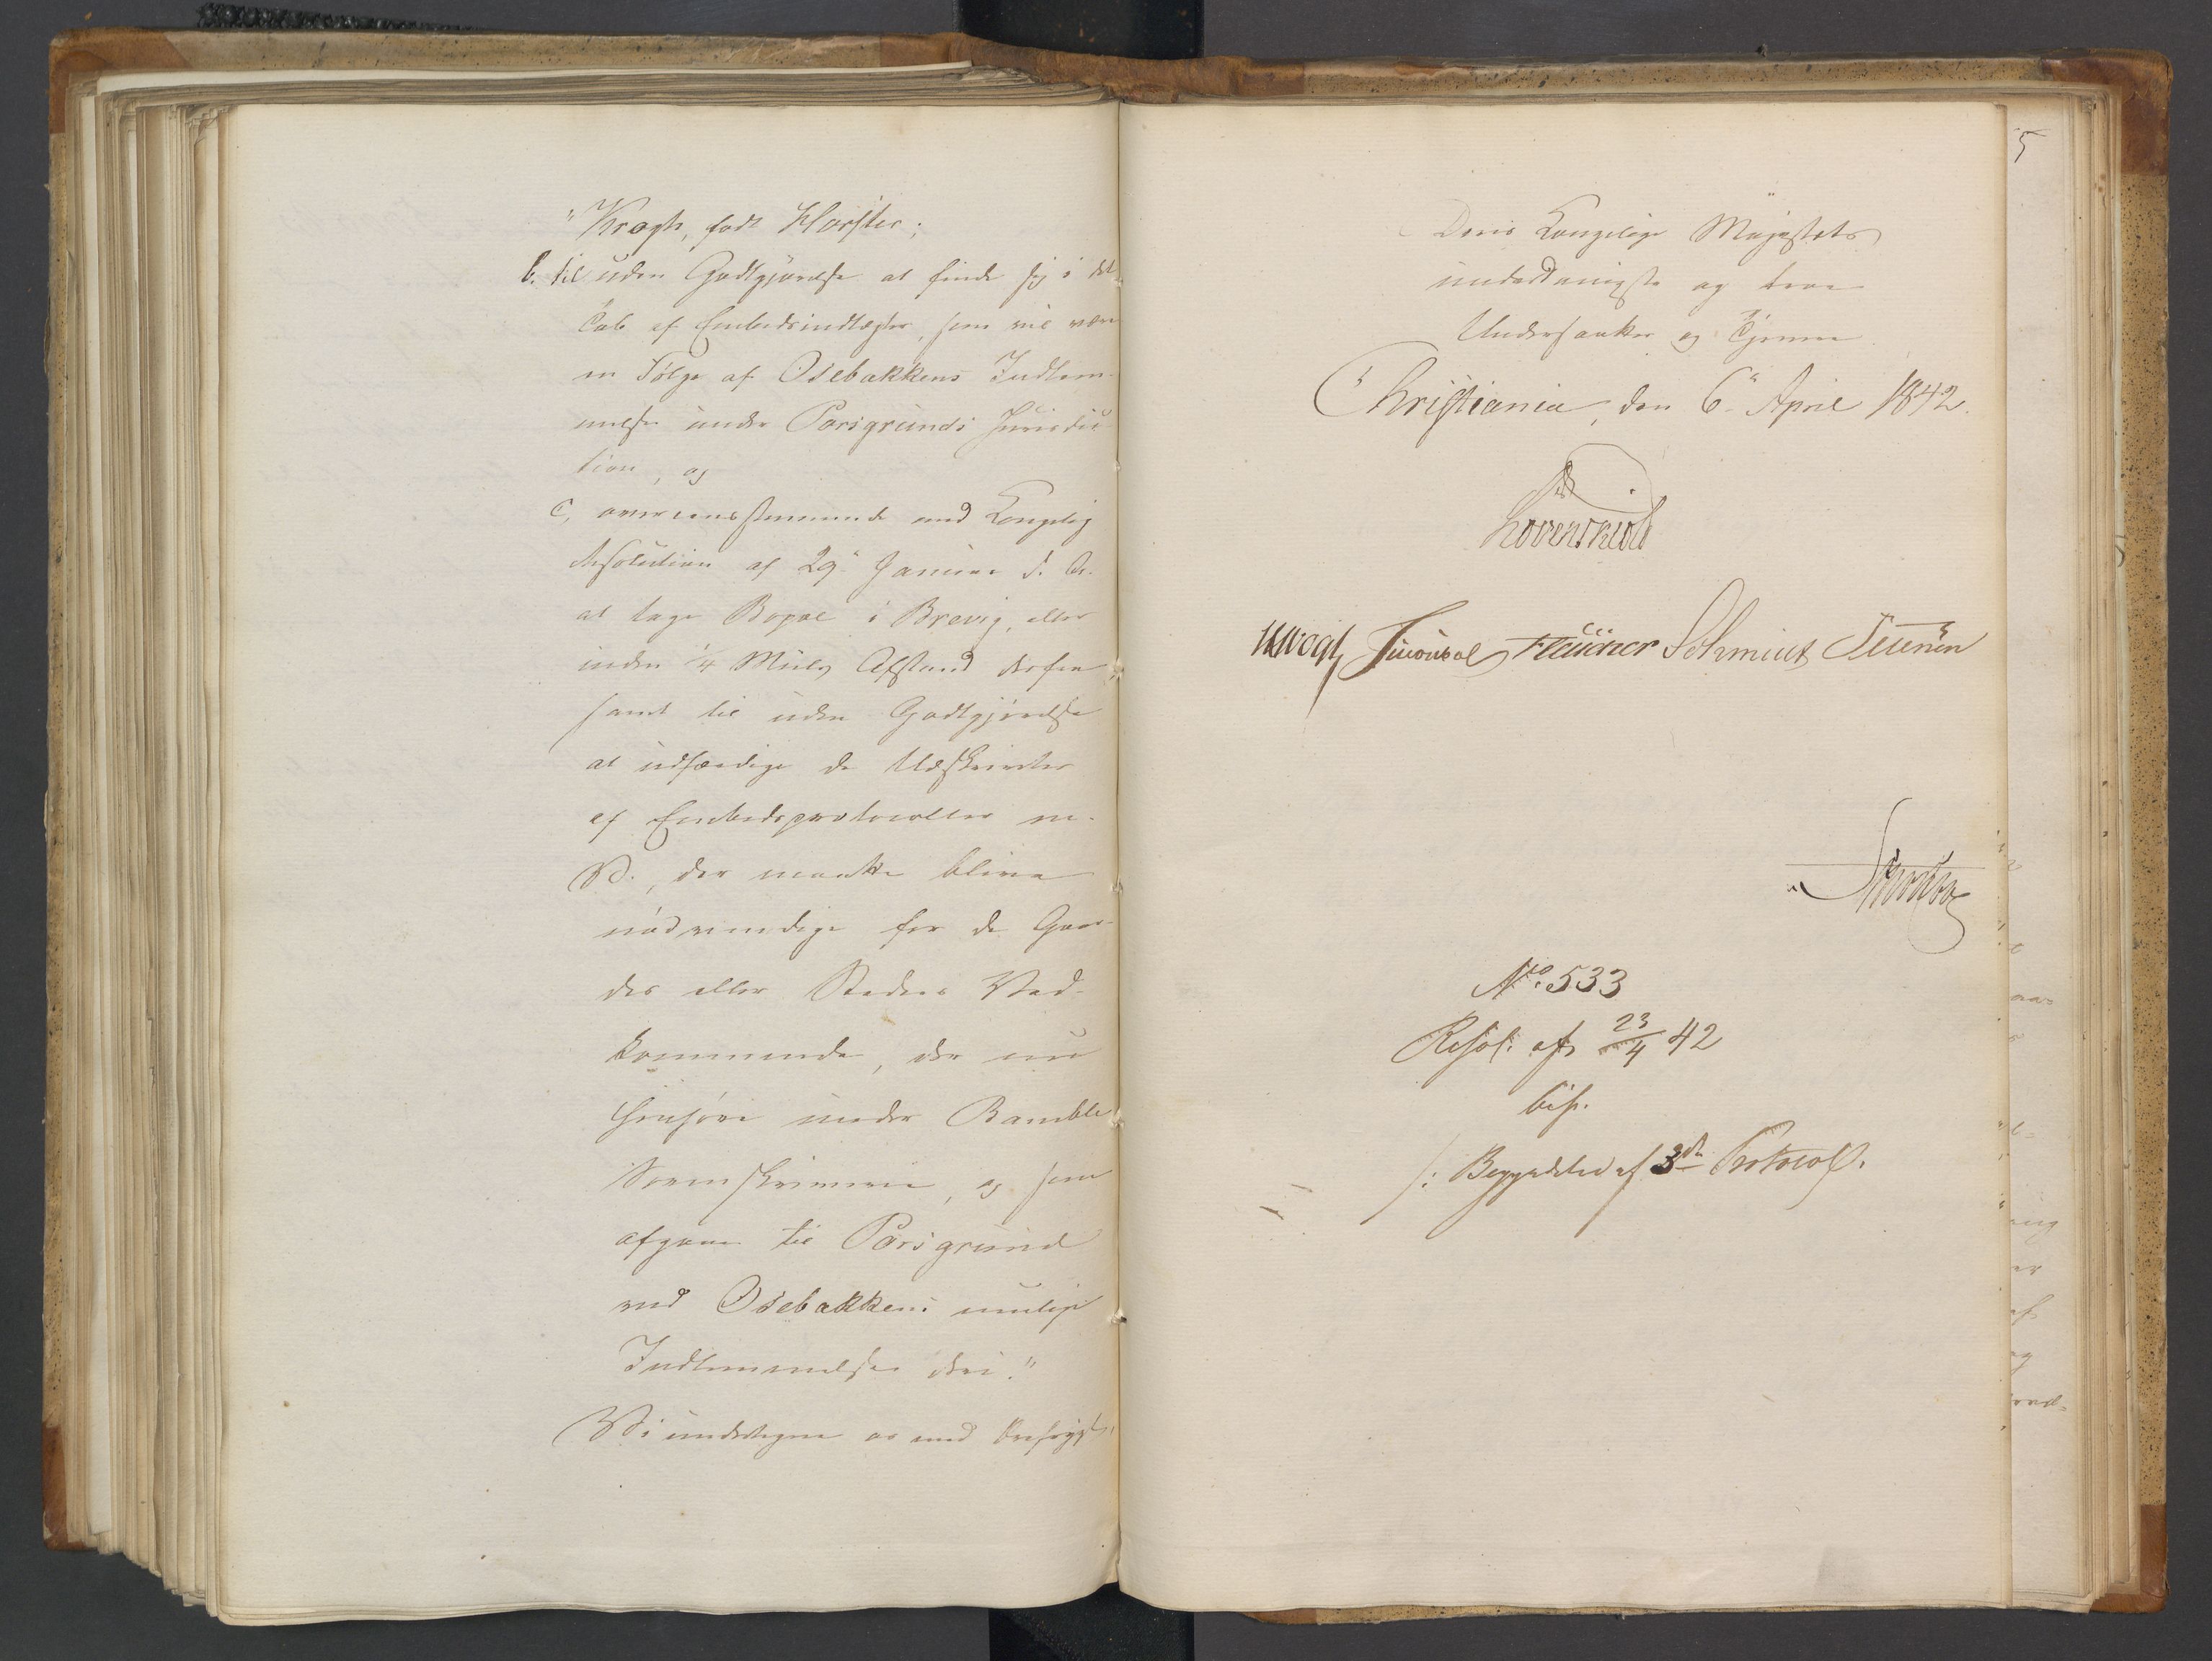 "Kragh, født Horster;
b. til uden Godtgjørelse at finde sig i det
Tab af Embedsindtægter, som vil være
en Følge af Osebakkens Indlem-
melse under Porsgrunds Jurisdic-
tion, og
c, overeensstemmende med Kongelig
Resolution af 29de Januar d. A.
at tage Bopæl i Brevig, eller
inden 1/4 Miils Afstand derfra
samt til uden Godtgjørelse
at udfærdige de Udskrivter
af Embedsprotocoller m.
V., der maatte blive
nødvendige for de Gaar-
des eller Steders Ved-
kommende, der nu
henhøre under Bamble
Sorenskriverie, og som
afgaae til Porsgrund
ved Osebakkens muligen
Indlemmelse deri."
Vi undertegne os med dybeste
Deres Kongelige Majestæts
underdanigste og troe
Undersaatter og Tjenere
Christiania, den 6te April 1842.
Løvenskiold
Vogt Sibbern Fleischer Schmidt Steenen
No. 533
Resol. af 23/4 42
bif.
/: Beggedeled af 3die Protocol.